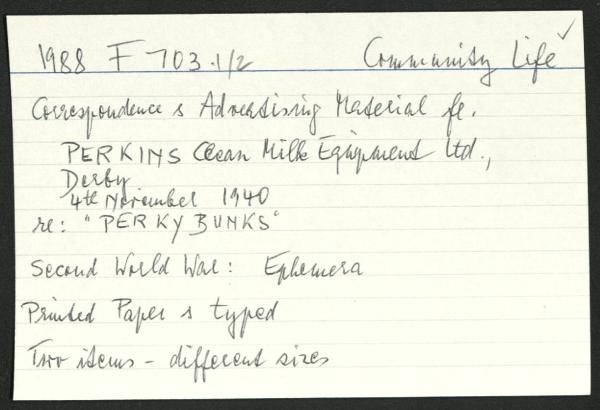 1988 F 703.1/2 Community Life ✓
Correspondence & Advertising Material fr.
PERKINS Clean Milk Equipment Ltd.,
Derby
4th November 1940
re: "PERKY BUNKS"
Second World War: Ephemera
Printed Paper & typed
Two items - different sizes